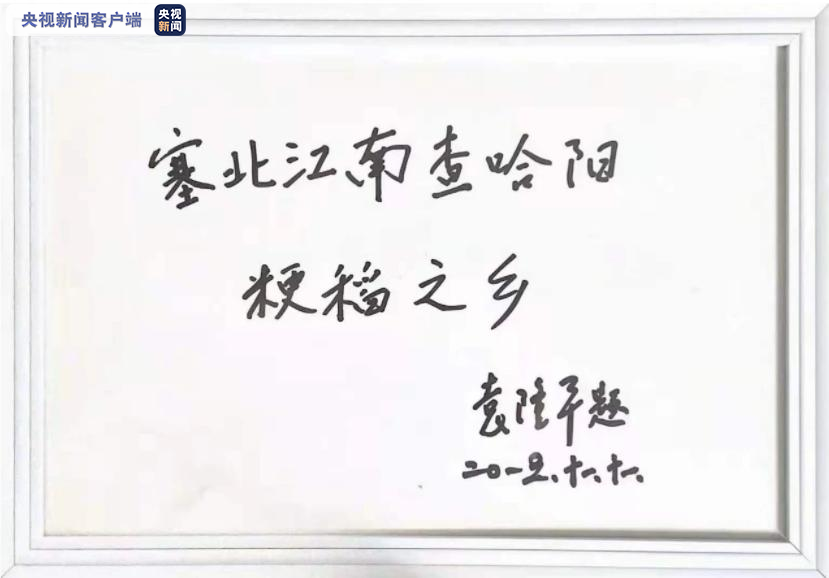 央视新闻客户端
央视
新闻
塞北江南查哈阳
粳稻之乡
袁隆平题
十一、十一、